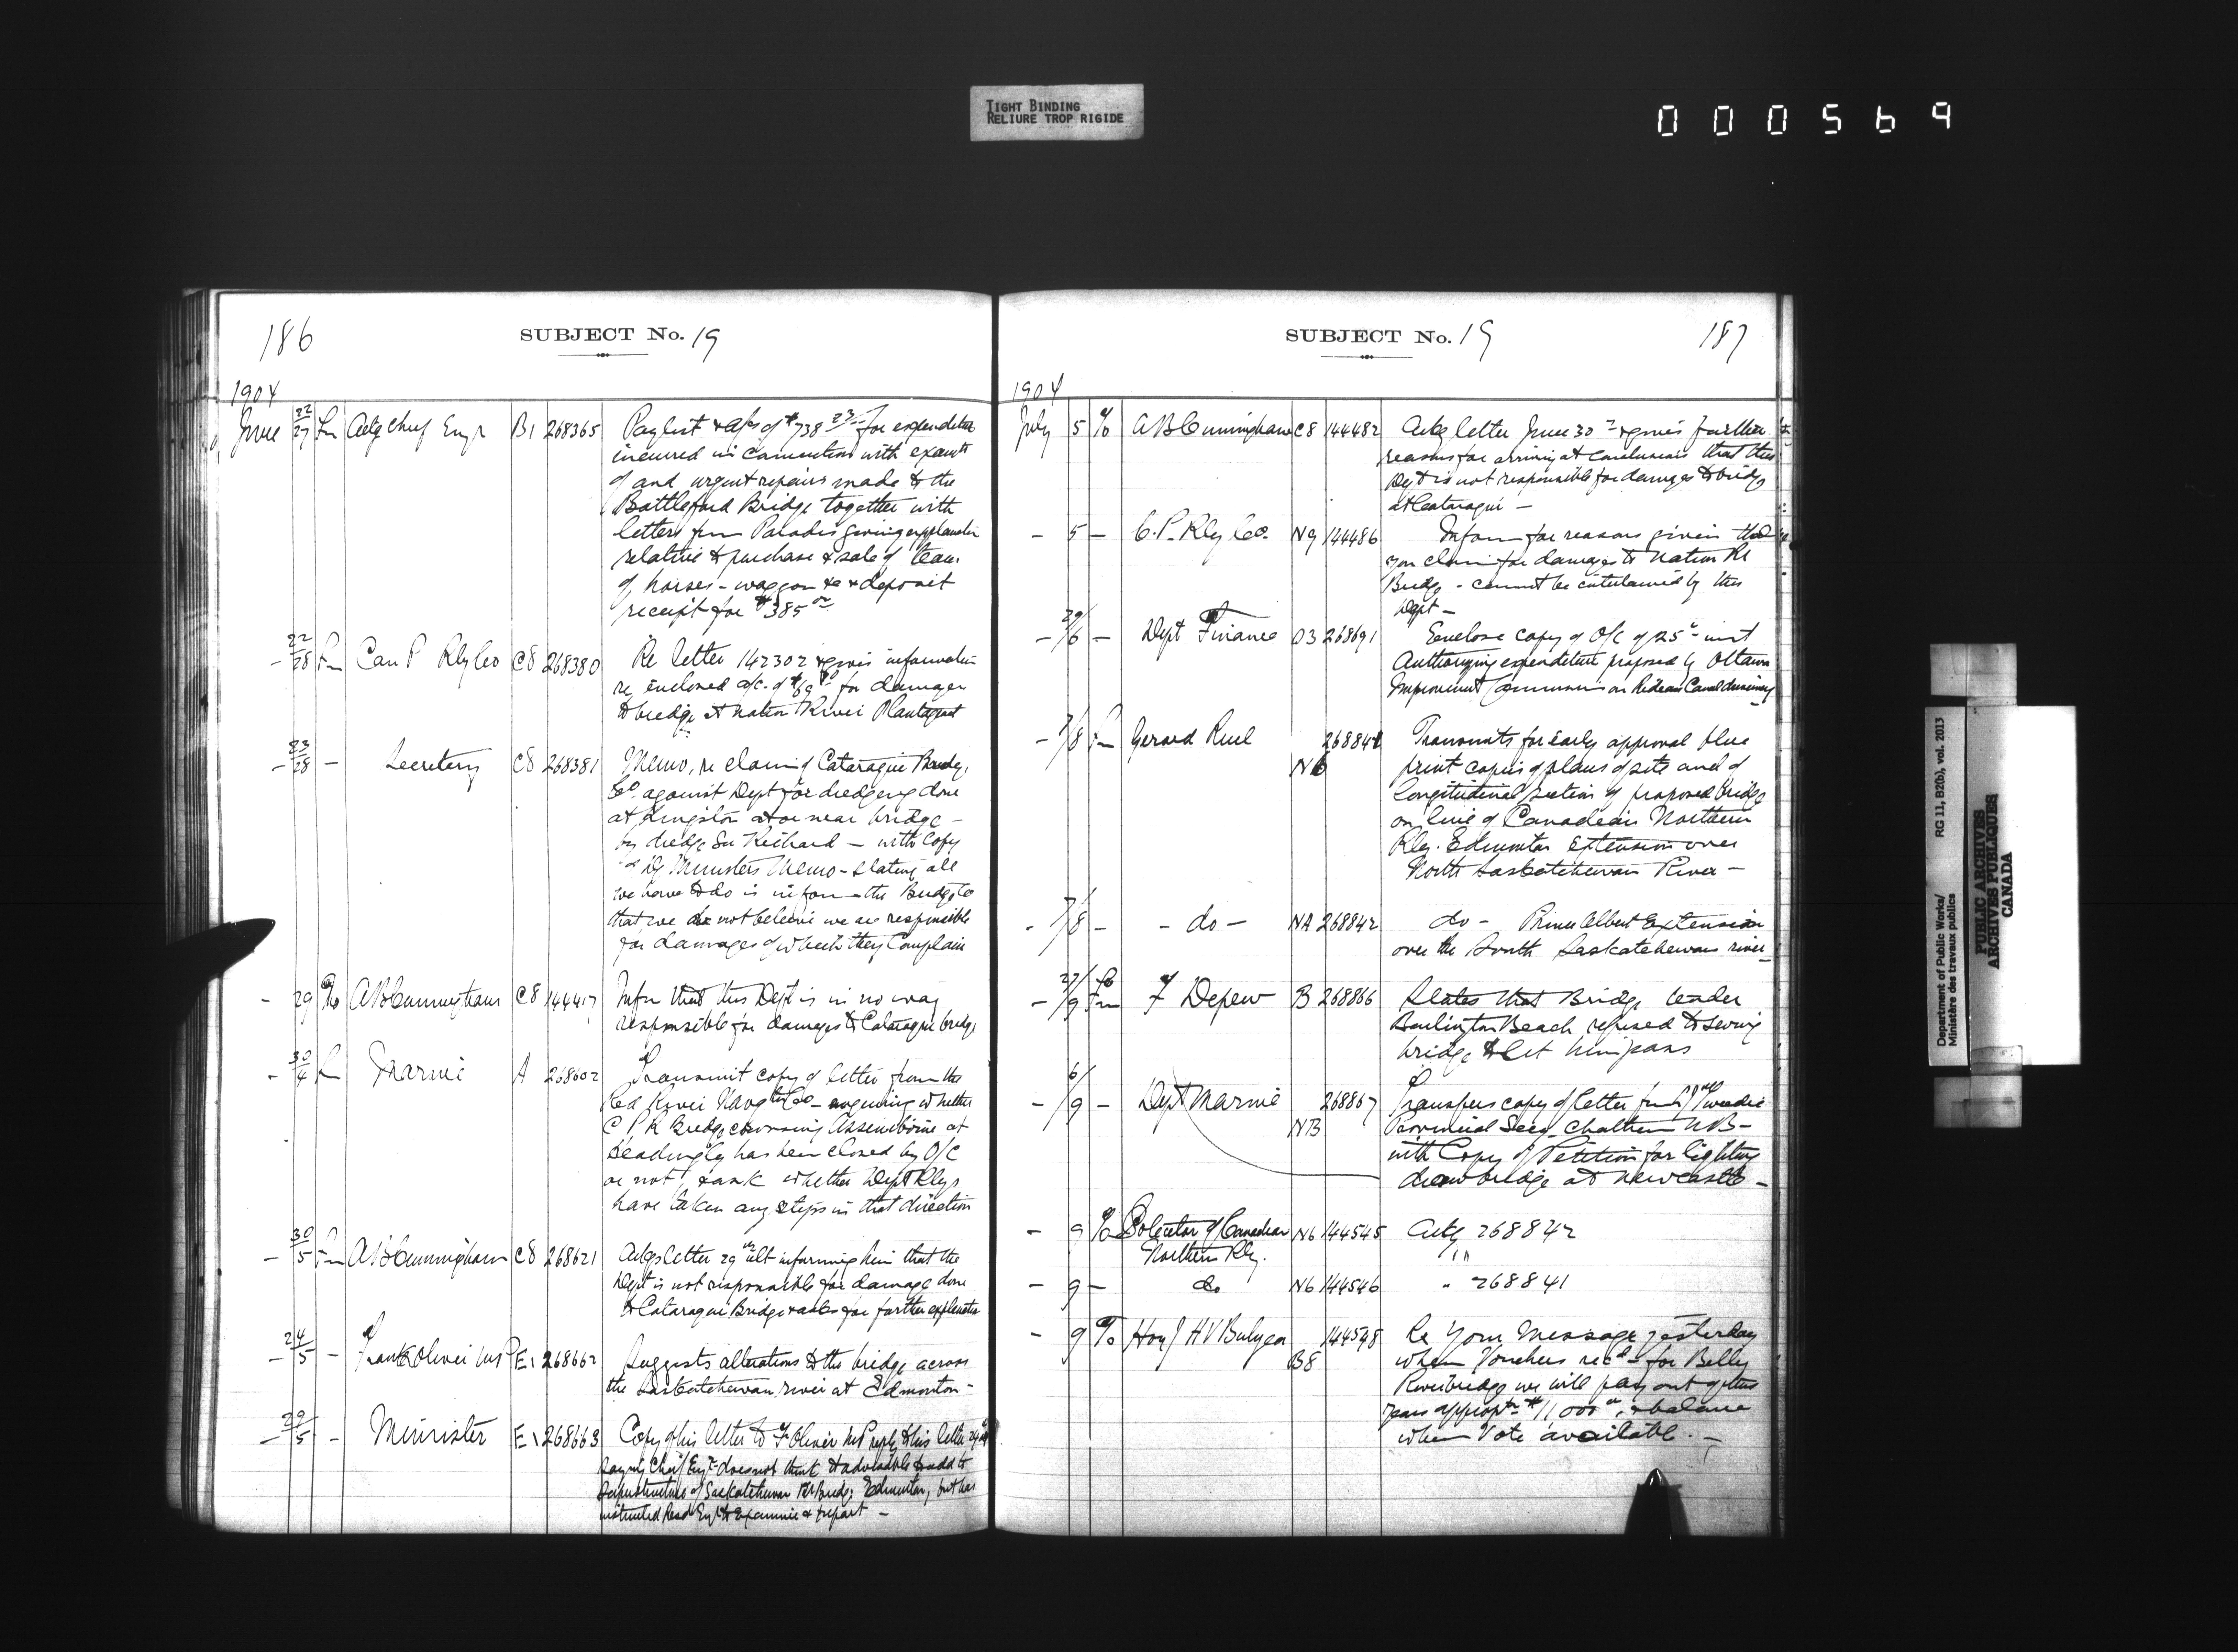 TIGHT BINDING
RELIURE TROP RIGIDE
000569
186
SUBJECT No. 19
1904
June 22/27 Fm Actg Chief Engr B1 268365 Paylist & a/cs of $738.23 for expenditure
incurred in connection with examtn
of and urgent repairs made to the
Battleford Bridge together with
letters from Paradis giving explanation
relative to purchase & sale of team
of horses - waggon &c & deposit
receipt for $385
- 22/28 Fm Can P Rly Co C8 268380 Re letter 142302 & gives information
re enclosed a/c of $69 for damages
to bridge at Nation River Plantagenet
- 23/28 - Secretary C8 268381 Memo, re claim of Cataraqui Bridge
Co. against Dept for dredging done
at Kingston at or near bridge -
by dredge Sir Richard - with copy
of Dy Ministers Memo - stating all
we have to do is inform the Bridge Co
that we do not believe we are responsible
for damages of which they complain
- 29 To A B Cunningham C8 144417 Infm that this Dept is in no way
responsible for damages to Cataraqui bridge
- 30/4 Fm Marine A 268602 Transmit copy of letter from the
Red River Navgtn Co - enquiring whether
C P R Bridge crossing Assiniboine at
Headingly has been closed by O/C
or not, & ask whether Dept Rlys
have taken any steps in that direction
- 30/5 Fm A B Cunningham C8 268621 Ackgs letter 29 ult informing him that the
Dept is not responsible for damage done
to Cataraqui Bridge & asks for further explanation
- 24/5 - Frank Oliver MP E1 268662 Suggests alterations to the bridge across
the Saskatchewan river at Edmonton -
- 29/5 - Minister E1 268663 Copy of his letter to F Oliver MP reply to his letter 24
saying Chief Engr does not think it advisable to add to
Superstructure of Saskatchewan Rr Bridge Edmonton, but has
instructed Resdt Engr to Examine & report -
SUBJECT No. 19
187
1904
July 5 To A B Cunningham C8 144482 Ackg letter June 30 & gives further
reasons for arriving at conclusions that this
Dept is not responsible for damages to bridge
at Cataraqui -
- 5 - C. P. Rly Co. N9 144486 Inform for reasons given that
your claim for damages to Nation Rr
Bridge - cannot be entertained by this
Dept -
- 29/6 - Dept Finance O3 268691 Enclose copy of O/C of 25 inst
Authorizing expenditure proposed by Ottawa
Improvement Commission on Rideau Canal
- 7/8 Fm Gerard Ruel N6 268841 Transmits for early approval blue
print copies of plans of site and of
longitudinal section of proposed bridge
on line of Canadian Northern
Rly. Edmonton Extension over
North Saskatchewan River -
- 7/8 - - do - NA 268842 do - Prince Albert Extension
over the South Saskatchewan river -
- 27/9 Fm F Depew B 268866 States that Bridge tender
Burlington Beach refused to swing
bridge to let him pass
- 6/9 - Dept Marine NB 268867 Transfers copy of letter from Tweedie
Provincial Secy Chatham N B -
with copy of Petition for lighting
drawbridge at Newcastle -
- 9 To Solicitor of Canadian N6 144545 Ackg 268842
Northern Rly.
- 9 - do N6 144546 " 268841
- 9 To Hon H V Bulyea B8 144548 Re Your Message yesterday
when Vouchers recd for Belly
River bridge we will pay out of this
years approptn $11,000, & balance
when Vote available. -
Department of Public Works/
Ministère des travaux publics
RG 11, B2(b), vol. 2013
PUBLIC ARCHIVES
ARCHIVES PUBLIQUES
CANADA